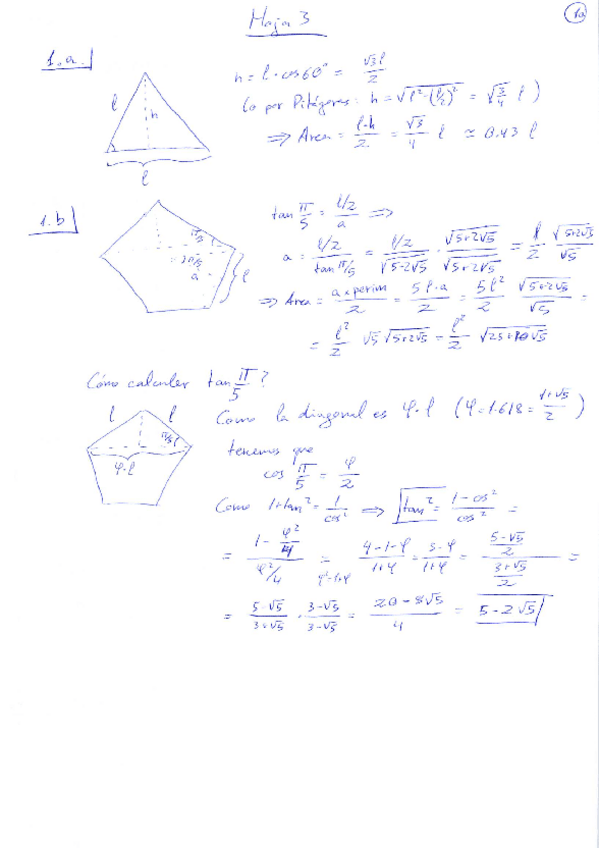 Hoja 3
1a
1.a.
l
h
l
h = l · cos 60° = √3 l / 2
(o por Pitágoras: h = √(l² - (l/2)²) = √(3/4) l )
⇒ Area = l·h / 2 = √3 / 4 l ≃ 0.43 l
1.b
π/5
a
l
tan π/5 = (l/2) / a ⇒
a = (l/2) / (tan π/5) = (l/2) / √(5-2√5) · √(5+2√5) / √(5+2√5) = l/2 √(5+2√5) / √5
⇒ Area = a × perim / 2 = 5 l·a / 2 = 5 l² / 2 √(5+2√5) / √5 =
= l²/2 √5 √(5+2√5) = l²/2 √(25+10√5)
Cómo calcular tan π/5 ?
l l
π/5
φ·l
Como la diagonal es φ·l (φ = 1.618 = (1+√5)/2 )
tenemos que
cos π/5 = φ/2
Como 1+tan² = 1/cos² ⇒ tan² = (1 - cos²) / cos² =
= (1 - φ²/4) / (φ²/4) = φ²=1+φ (4-1-φ) / (1+φ) = (3-φ) / (1+φ) = ((5-√5)/2) / ((3+√5)/2) =
= (5-√5) / (3+√5) · (3-√5) / (3-√5) = (20 - 8√5) / 4 = 5 - 2√5